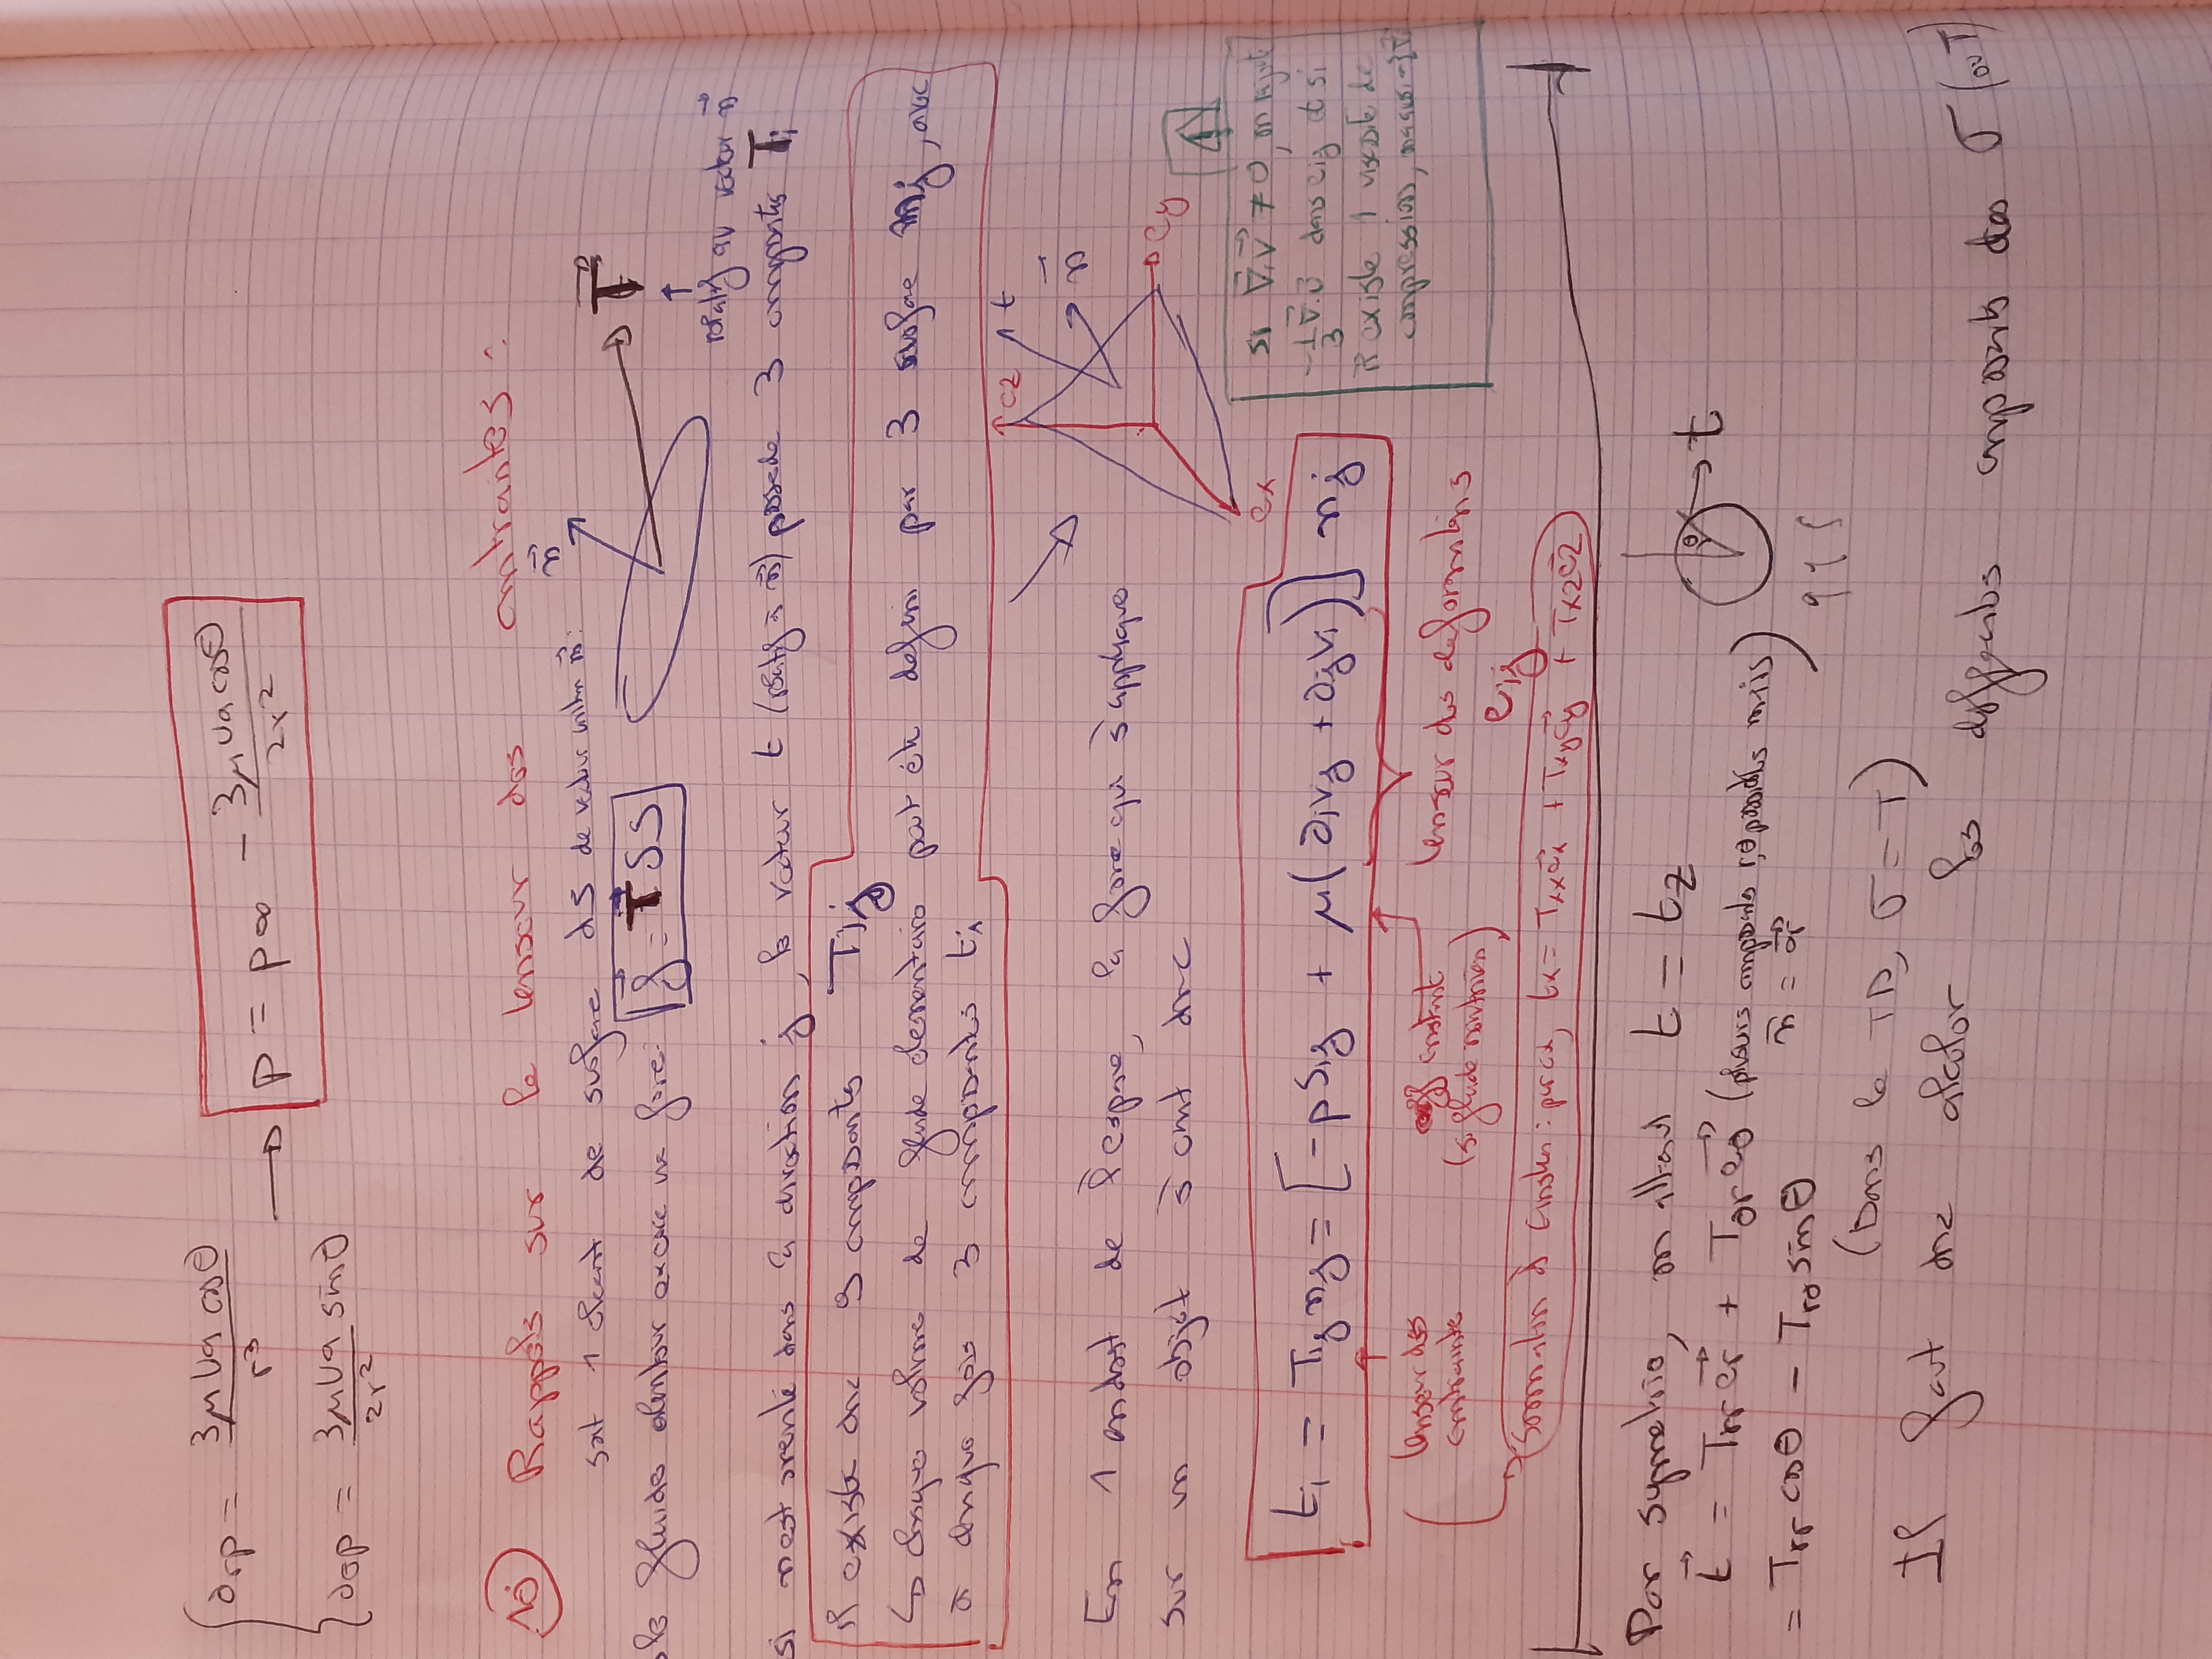 ∂rp = 3μUa cosθ / r³
→ p = p∞ − 3μUa cosθ / 2r²
∂θp = 3μUa sinθ / 2r²
10) Rappels sur le tenseur des contraintes :
soit 1 élément de surface dS de vecteur unitr n⃗ :
n⃗
le fluide alentour exerce une force: f⃗ = T⃗ δS
T⃗
↑
relatif au vecteur n⃗
si n est orienté dans la direction j, le vecteur t (relatif à n⃗) possède 3 composantes Ti
Il existe donc 9 composantes Tij
↳ chaque volume de fluide élémentaire peut êt défini par 3 surface nj, avec
à chaque fois 3 composantes ti
ez t
n⃗
ey
ex
En 1 endroit de l'espace, la force qui s'applique
sur un objet s'écrit donc
ti = Tij nj = [-pδij + μ(∂ivj + ∂jvi)] nj
si ∇⃗.v⃗ ≠ 0, on rajoute
-1/3 ∇⃗.v⃗ dans eij et si
il existe 1 viscosité de
compression,
tenseur des
contrainte
constant
(si fluide newtonien)
tenseur des déformations
eij
Sommation d'Einstein : par ex, tx = Txx e⃗x + Txy e⃗y + Txz e⃗z
Par symétrie, on attend t = tz
t⃗ = Trr e⃗r + Tθr e⃗θ (plusieurs composantes r,θ possibles mais
n⃗ = e⃗r)
= Trr cosθ − Trθ sinθ
θ
t
(Dans le TD, σ = T)
Il faut donc calculer les différentes composantes des σ (ou T)